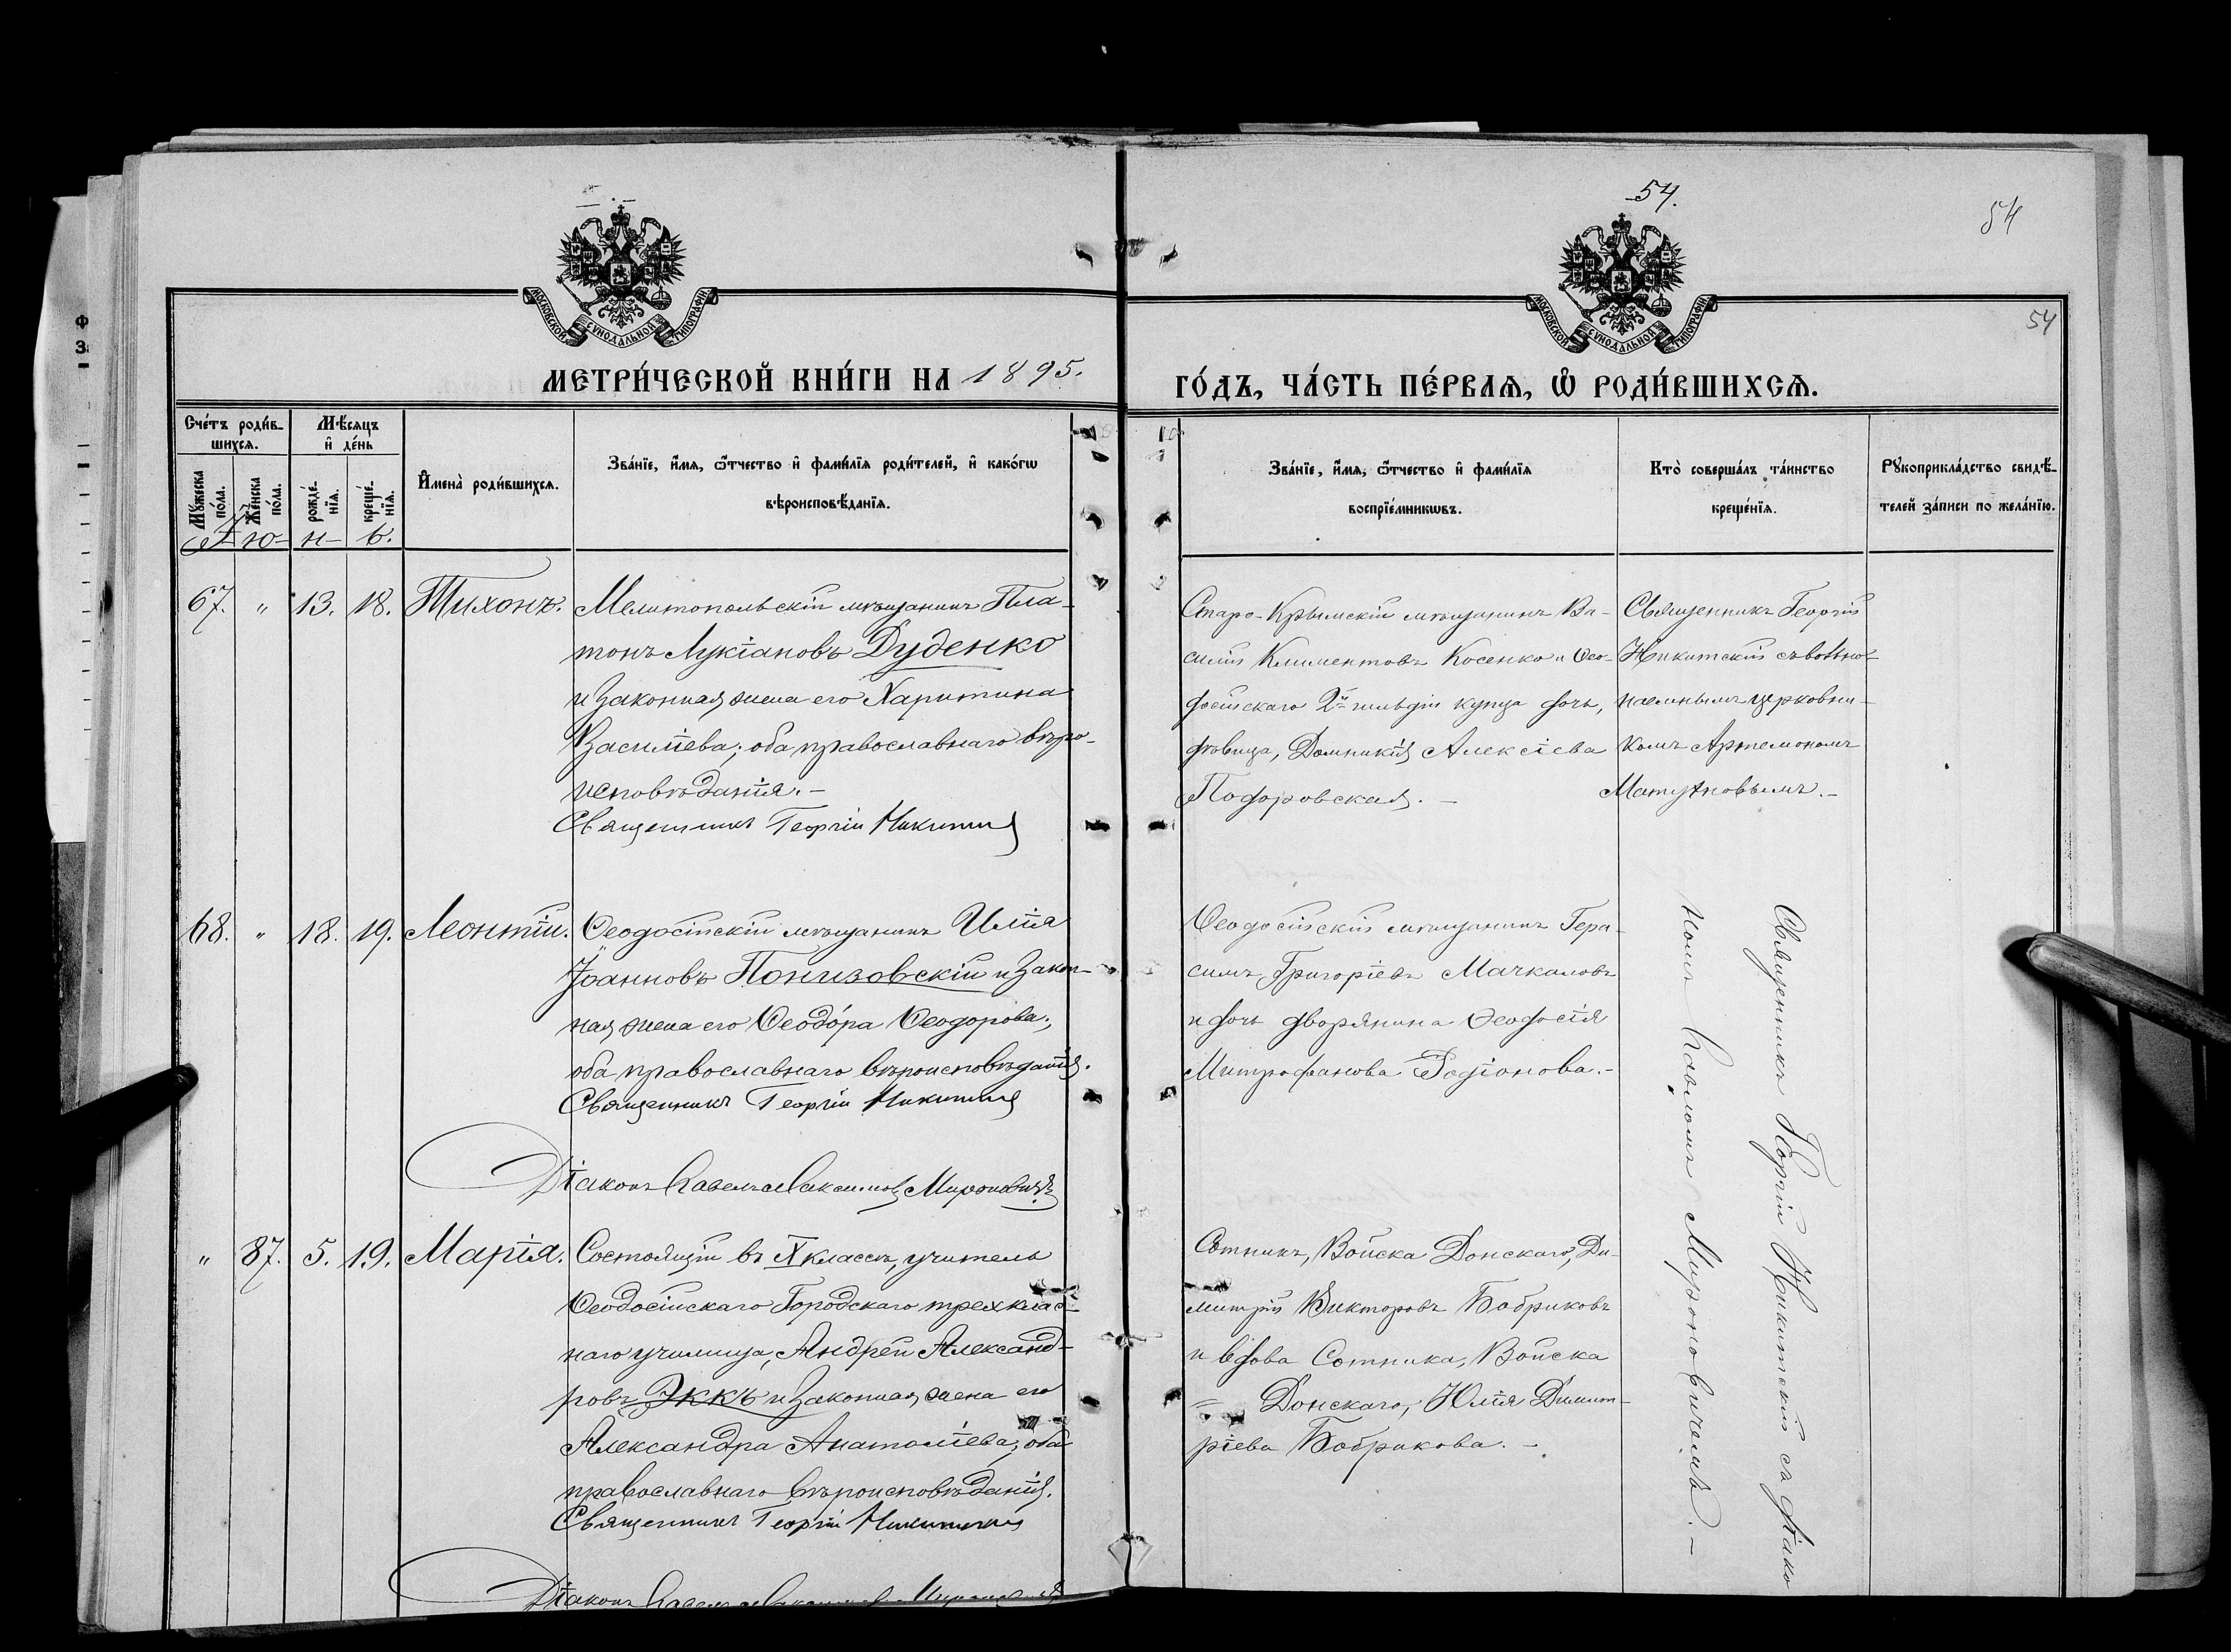 54.
54
54
МОСКОВСКОЙ СѴНОДАЛЬНОЙ ТИПОГРАФІИ
МОСКОВСКОЙ СѴНОДАЛЬНОЙ ТИПОГРАФІИ
МЕТРИ́ЧЕСКОЙ КНИ́ГИ НА 1895.
ГО́ДЪ, ЧА́СТЬ ПЕ́РВАЯ, Ѡ҆ РОДИ́ВШИХСЯ.
Сче́тъ роди́в-
шихся.
Мꙋ́жеска по́ла.
Же́нска по́ла.
Мѣ́сяцъ
и҆ де́нь
рожде́-
нїя.
креще́-
нїя.
И҆мена̀ роди́вшихся.
Зва́нїе, и҆́мя, ѻ҆́тчество и҆ фами́лїя роди́телей, и҆ како́гѡ
вѣроисповѣ́данїя.
Зва́нїе, и҆́мя, ѻ҆́тчество и҆ фами́лїя
воспрїе́мникѡвъ.
Кто̀ соверша́лъ та́инство
креще́нїя.
Рꙋкоприкла́дство свидѣ́-
телей за́писи по жела́нїю.
І-ю-н-ь.
67. " 13. 18. Тихонъ.
Мелитопольскій мѣщанинъ Пла-
тонъ Лукіановъ Дуденко
и законная жена его Харитина
Василіева; оба православнаго вѣро-
исповѣданія.-
Священникъ Георгій Никитскій
Старо-Крымскій мѣщанинъ Ва-
силій Климентовъ Косенко и Ѳео-
досійскаго 2й гильдіи купца дочь,
дѣвица, Домникія Алексіева
Подоровская.-
Священникъ Георгій
Никитскій съ вольно-
наемнымъ церковни-
комъ Артемономъ
68. " 18. 19. Леонтій.
Ѳеодосійскій мѣщанинъ Илія
Іоанновъ Понизовскій и закон-
ная жена его Ѳеодо́ра Ѳеодорова;
оба православнаго вѣроисповѣданія.
Священникъ Георгій Никитскій
Діаконъ Павелъ Максимовъ Мироновичъ
Ѳеодосійскій мѣщанинъ Гера-
симъ Григоріевъ Мачкаловъ
и дочь дворянина Ѳеодосія
Митрофанова Родіонова.-
Священникъ Георгій Никитскій съ діако
номъ Павломъ Мироновичемъ.-
" 87. 5. 19. Марія.
Состоящій въ X классѣ, учитель
Ѳеодосійскаго Городскаго трехклас-
наго училища, Андрей Александ-
ровъ Эккъ и законная жена его
Александра Анатоліева; оба
православнаго вѣроисповѣданія.
Священникъ Георгій Никитскій
Діаконъ Павелъ Максимовъ Мироновичъ
Сотникъ, Войска Донскаго, Ди-
митрій Викторовъ Бобриковъ
и вдова Сотника, Войска
= Донскаго, Юлія Димит-
ріева Бобрикова.-